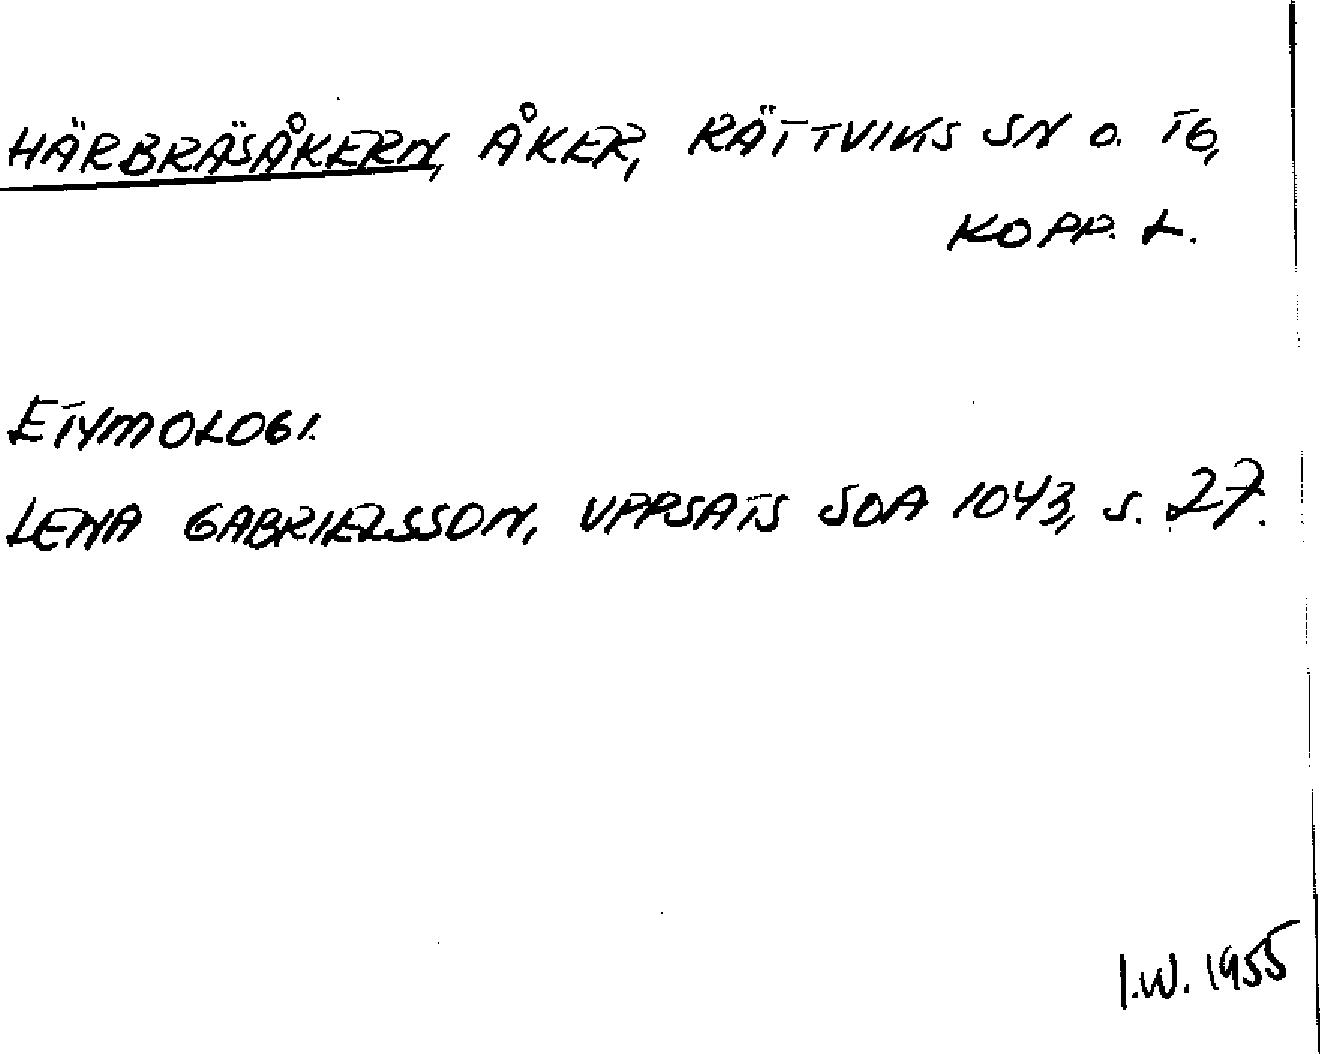 HÄRBRÄSÅKERN, ÅKER, RÄTTVIKS SN O. TG,
KOPP. L.
ETYMOLOGI.
LENA GABRIELSSON, UPPSATS SOA 1043, S. 27.
I.W. 1955